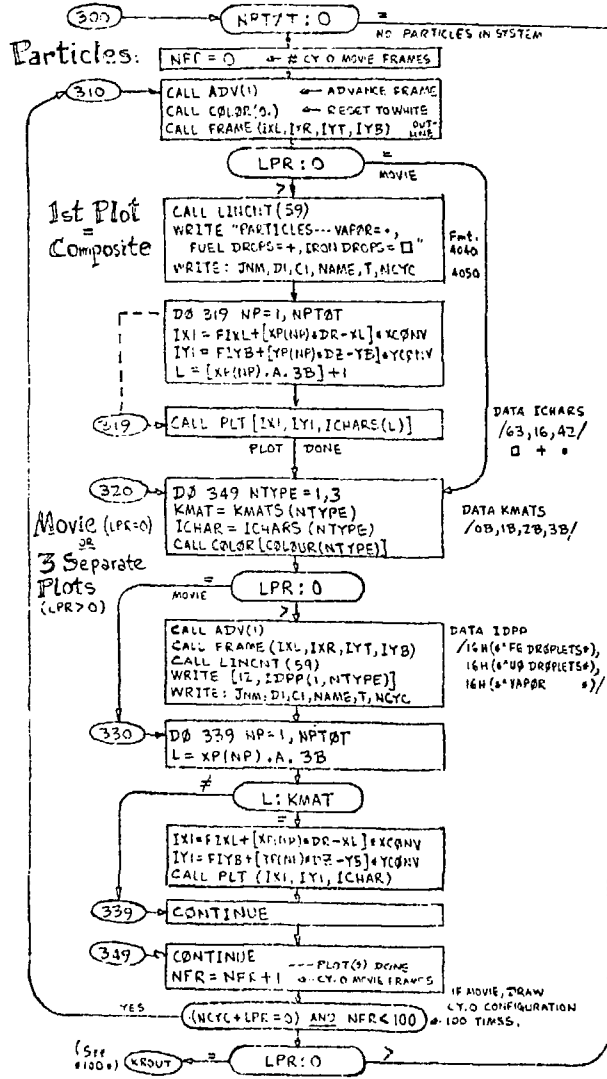 300
NPTØT : 0
=
NO PARTICLES IN SYSTEM
Particles:
NFR = 0 ← # CY.0 MOVIE FRAMES
310
CALL ADV(1) ← ADVANCE FRAME
CALL CØLØR(0.) ← RESET TO WHITE
CALL FRAME (IXL, IYR, IYT, IYB) OUT-LINE
LPR : 0
=
MOVIE
>
1st Plot
=
Composite
CALL LINCNT (59)
WRITE "PARTICLES--- VAPOR=•,
FUEL DROPS=+, IRON DROPS=□"
WRITE: JNM, D1, C1, NAME, T, NCYC
Fmt.
4040
4050
DØ 319 NP=1, NPTØT
IX1 = FIXL+[XP(NP)*DR-XL]*XCØNV
IY1 = FIYB+[YP(NP)*DZ-YB]*YCØNV
L = [XP(NP).A.3B]+1
319
CALL PLT [IX1, IY1, ICHARS(L)]
PLOT DONE
DATA ICHARS
/63,16,42/
□ + •
320
DØ 349 NTYPE=1,3
KMAT = KMATS (NTYPE)
ICHAR = ICHARS (NTYPE)
CALL COLOR [COLOUR(NTYPE)]
DATA KMATS
/0B,1B,2B,3B/
Movie (LPR=0)
OR
3 Separate
Plots
(LPR>0)
=
MOVIE
LPR : 0
>
CALL ADV(1)
CALL FRAME (IXL, IXR, IYT, IYB)
CALL LINCNT (59)
WRITE [12, IDPP(1, NTYPE)]
WRITE: JNM, D1, C1, NAME, T, NCYC
DATA IDPP
/16H(*^FE DRØPLETS*),
16H(*^UØ DRØPLETS*),
16H(*^VAPØR *)/
330
DØ 339 NP=1, NPTØT
L = XP(NP).A.3B
≠
L : KMAT
=
IX1=FIXL+[XP(NP)*DR-XL]*XCØNV
IY1=FIYB+[YP(NP)*DZ-YB]*YCØNV
CALL PLT (IX1, IY1, ICHAR)
339
CØNTINUE
349
CØNTINUE --- PLOT(S) DONE
NFR = NFR+1 ← CY.0 MOVIE FRAMES
YES
(NCYC+LPR=0) AND NFR<100
IF MOVIE, DRAW
CY.0 CONFIGURATION
100 TIMES.
(See
*100*)
KROUT
=
LPR : 0
>